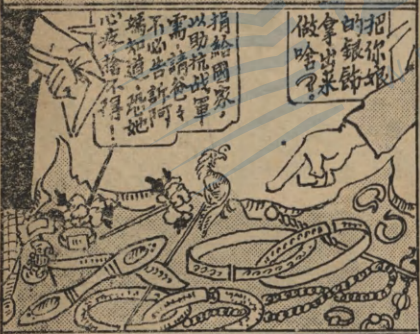 把你娘
的銀飾
拿出来
做啥？
捐給國家，
以助抗战軍
需，請爸々
不必告訴阿
媽知道，恐她
心疼捨不得！